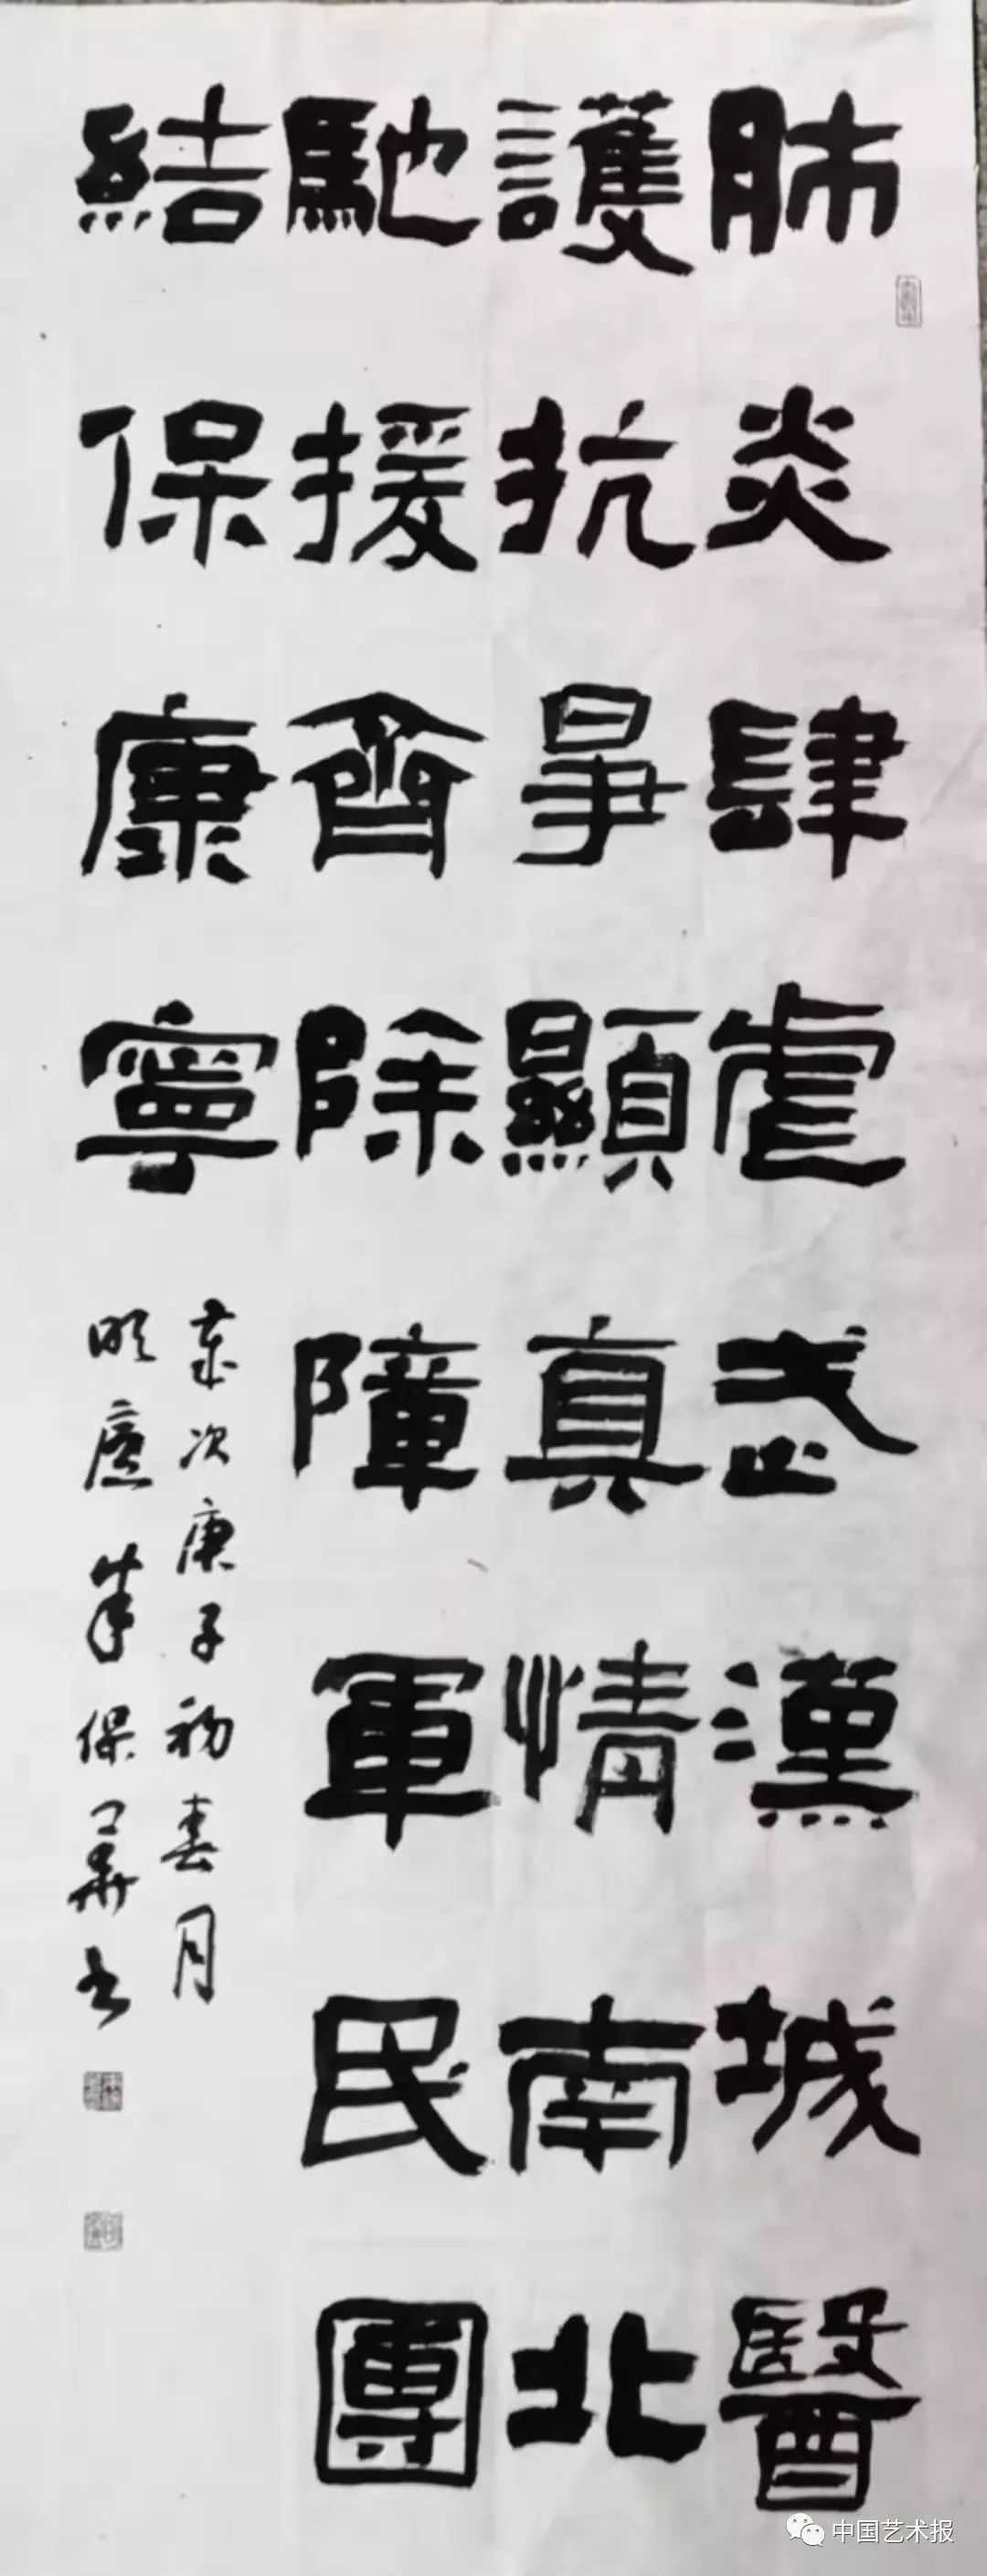 肺炎肆虐武漢城醫
護抗爭顯真情南北
馳援齊除障軍民團
結保康寧
歲次庚子初春月
保華书
中国艺术报